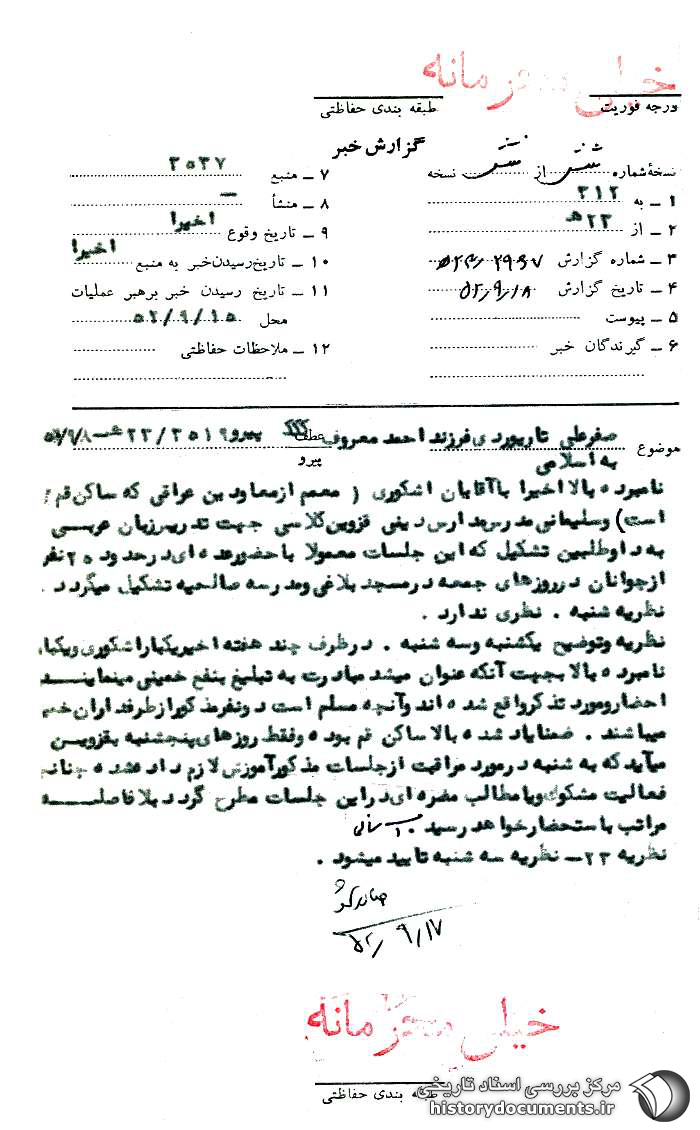 خیلی محرمانه
درجه فوریت
طبقه بندی حفاظتی
گزارش خبر
نسخهٔ شماره شش از شش نسخه
۱ ــ به ۳۱۲
۲ ــ از ۲۳هـ
۳ ــ شماره گزارش
۴ ــ تاریخ گزارش ۵۲/۹/۱۸
۵ ــ پیوست
۶ ــ گیرندگان خبر
۷ ــ منبع ۳۵۳۷
۸ ــ منشأ ــ
۹ ــ تاریخ وقوع اخیرا
۱۰ ــ تاریخ رسیدن خبر به منبع اخیرا
۱۱ ــ تاریخ رسیدن خبر برهبر عملیات
محل ۵۲/۹/۱۵
۱۲ ــ ملاحظات حفاظتی
موضوع صفرعلی تاریوردی فرزند احمد معروف به اسلامی
عطف پیرو ۲۳/۳۵۱۹هـ ــ ۵۲/۹/۸
پیرو
نامبرده بالا اخیرا با آقایان اشکوری ( معمم از معاودین عراقی که ساکن قم
است) وسلیمانی مدرس مدارس دینی قزوین کلاسی جهت تدریس زبان عربی
به داوطلبین تشکیل که این جلسات معمولا با حضور عده ای در حدود ۲۵ نفر
از جوانان در روزهای جمعه در مسجد بلاغی ومدرسه صالحیه تشکیل میگردد .
نظریه شنبه . نظری ندارد .
نظریه وتوضیح یکشنبه وسه شنبه . در ظرف چند هفته اخیر یکبار اشکوری ویکبار
نامبرده بالا بجهت آنکه عنوان میشد مبادرت به تبلیغ بنفع خمینی مینمایند
احضار ومورد تذکر واقع شده اند وآنچه مسلم است دو نفر مذکور از طرفداران خم
میباشند . ضمنا یاد شده بالا ساکن قم بوده وفقط روزهای پنجشنبه بقزوین
میآید که به شنبه در مورد مراقبت از جلسات مذکور آموزش لازم داده شده چنانچه
فعالیت مشکوک ویا مطالب مضره ای در این جلسات مطرح گردد بلافاصله
مراتب باستحضار خواهد رسید .
نظریه ۲۳ــ نظریه سه شنبه تایید میشود .
۵۲/۹/۱۷
خیلی محرمانه
طبقه بندی حفاظتی
مرکز بررسی اسناد تاریخی
historydocuments.ir